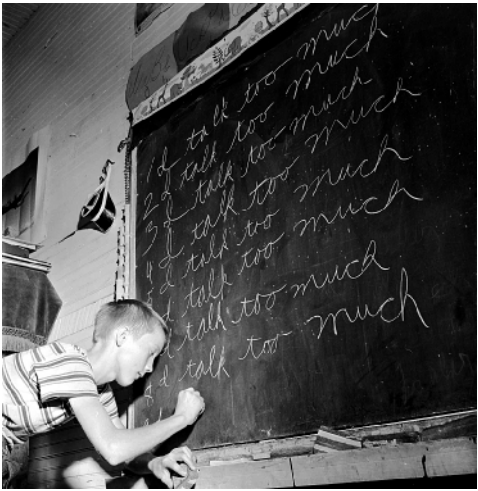 1 I talk too much
2 I talk too much
3 I talk too much
4 I talk too much
I talk too much
I talk too much
I talk too much
8 I talk too much